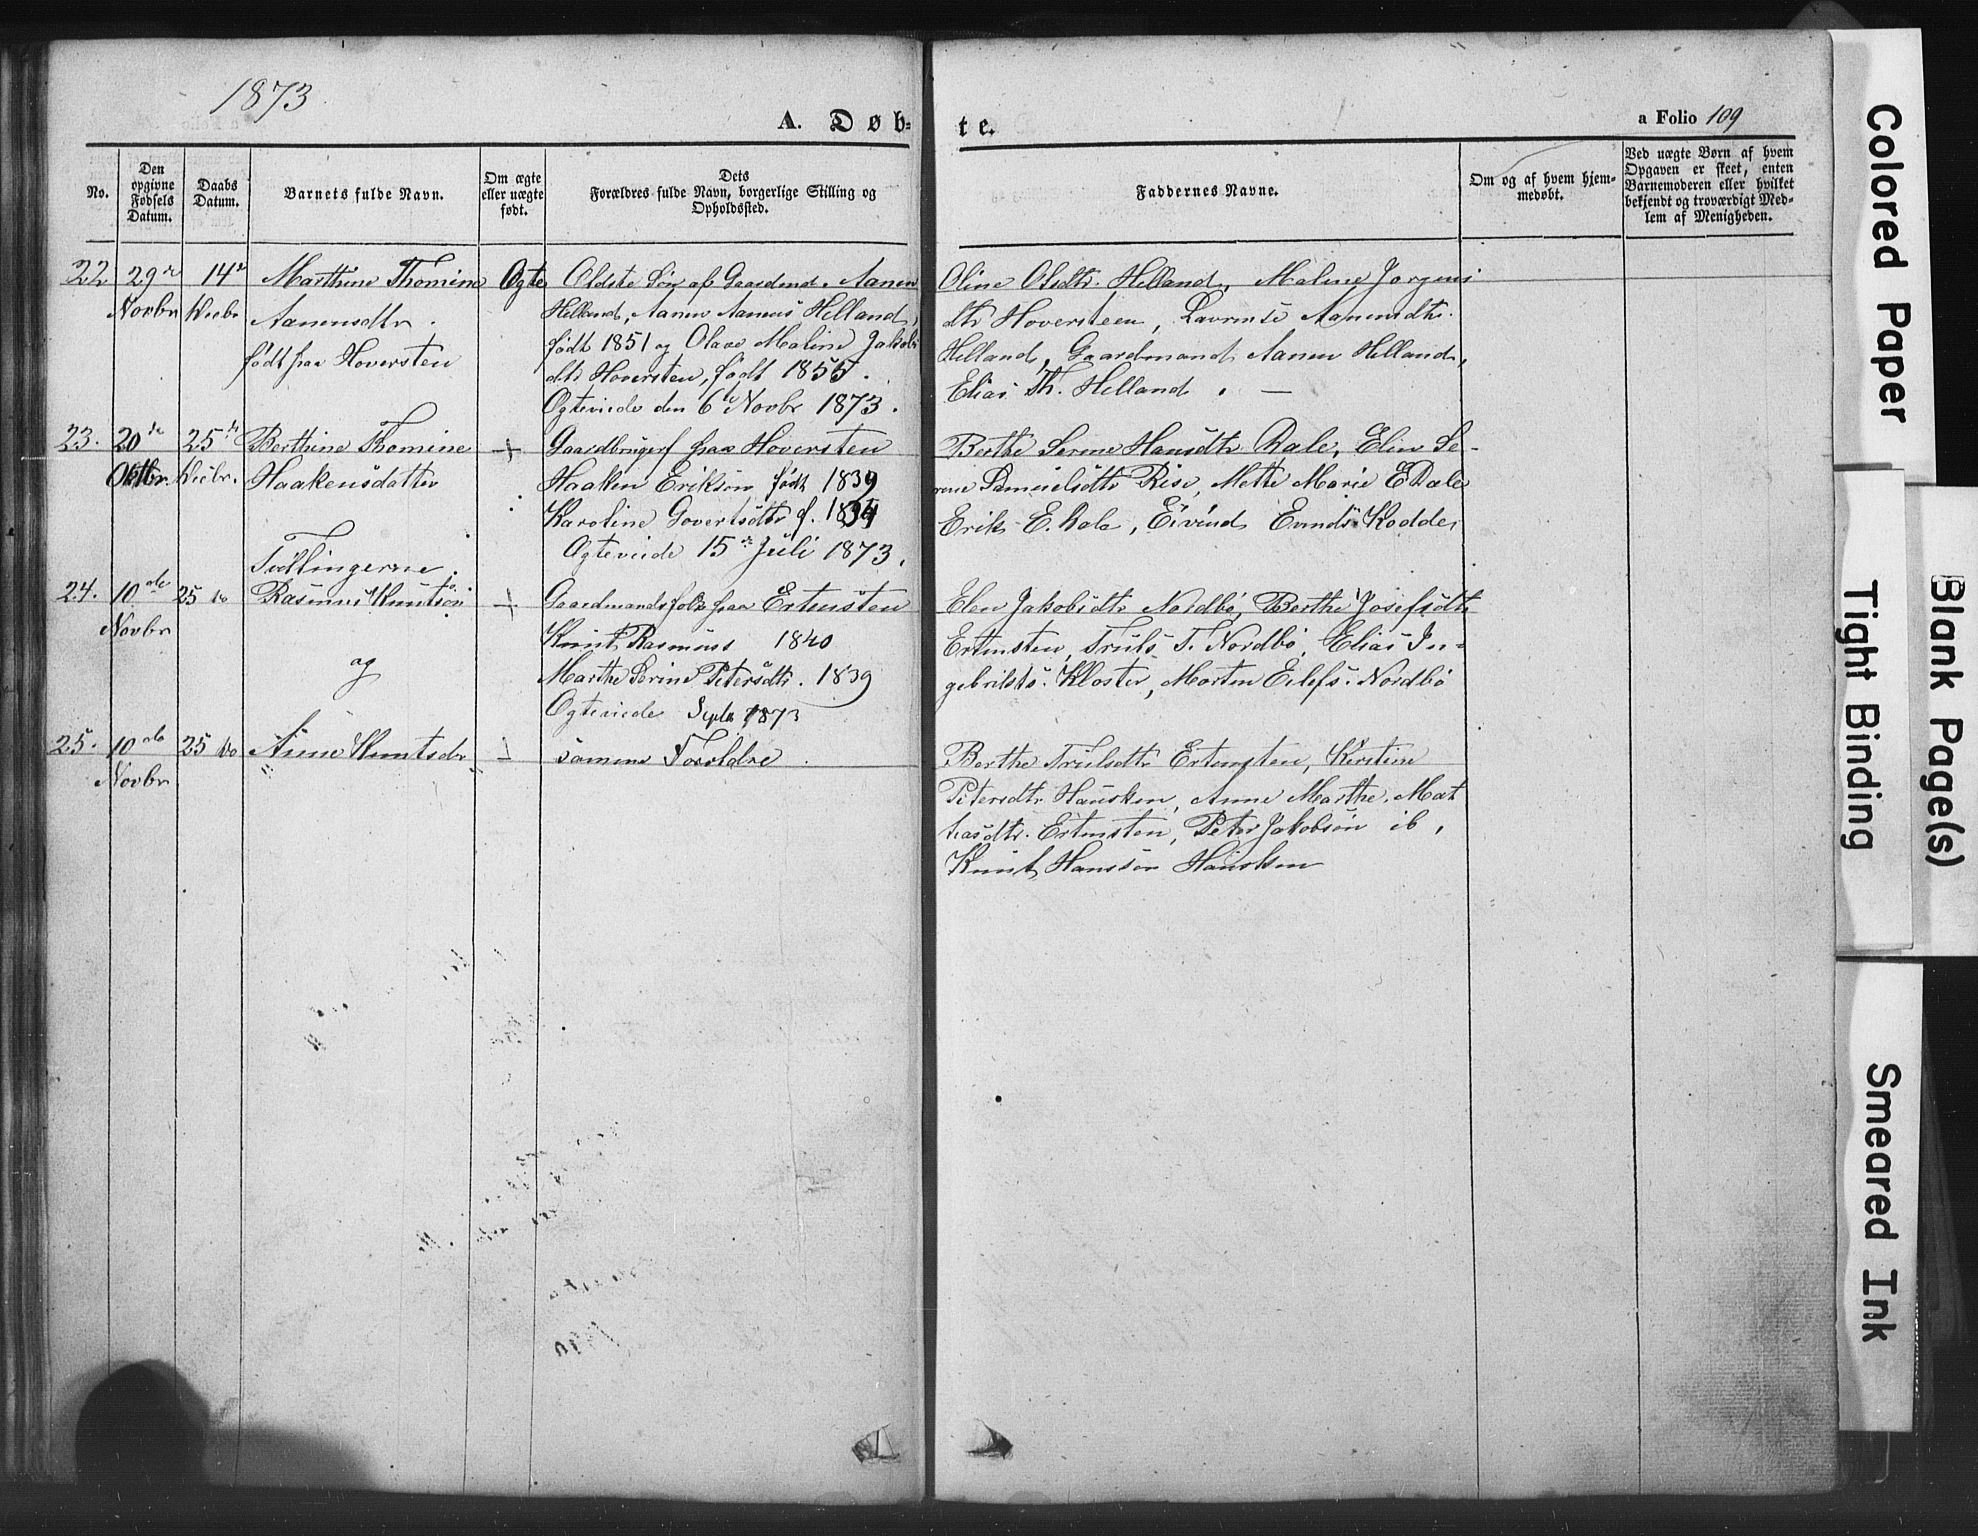 1873
A. Døb-
te.
a Folio 109
No.
Den opgivne Fødsels Datum.
Daabs Datum.
Barnets fulde Navn.
Om ægte eller uægte født.
Dets
Forældres fulde Navn, borgerlige Stilling og
Opholdssted.
Faddernes Navne.
Om og af hvem hjem-
medøbt.
Ved uægte Børn af hvem
Opgaven er skeet, enten
Barnemoderen eller hvilket
bekjendt og troværdigt Med-
lem af Menigheden.
22 29 14 Marthine Thomine Ægte
Novbr Decbr Aanensdtr
født paa Hoversten
Ældste Søn af Gaardmd. Aanen
Helland, Aanen Aanens Helland,
født 1851 og Olave Maline Jakobs
dtr Hoversten, født 1855.
Ægteviede den 6 Novbr 1873.
Oline Olsdtr. Helland, Maline Jørgens
dtr Hoversteen, Aanensdtr.
Helland, Gaardmand Aanen Helland,
Elias Th. Helland
23. 20de 25de Berthine Thomine +
Oktbr. Decbr. Haakensdatter
Gaardbrugerf paa Hoversten
Haaken Erikson født 1839
Karoline Govertsdtr f. 1834
Ægteviede 15de Juli 1873.
Berthe Serine Hansdtr Dale, Elen Se-
rine Samuelsdtr Rise, Mette Marie E Dale
Erik E. Dale, Eivind Kodde,
Tvillingerne
24. 10de 25 do Rasmus Knutson +
Novbr
og
Gaardmandsfolk paa Ertensten
Knut Rasmus 1840
Marthe Serine Petersdtr. 1839
Ægteviede Septr 1873
Elen Jakobsdtr Nordbø, Berthe Josefsdtr
Ertensten, Truls T. Nordbø, Elias In-
gebrikts. Kloster, Morten Eilefs. Nordbø
25. 10de 25 do Anne Knutsdr
Novbr
samme Forældre
Berthe Trulsdtr Ertensten, Kirstine
Petersdtr Hausken, Anne Marthe Mat
hiasdtr. Ertensten, Peter Jakobsøn ib,
Knut Hanssøn Hausken
Colored Paper
Blank Page(s)
Tight Binding
Smeared Ink